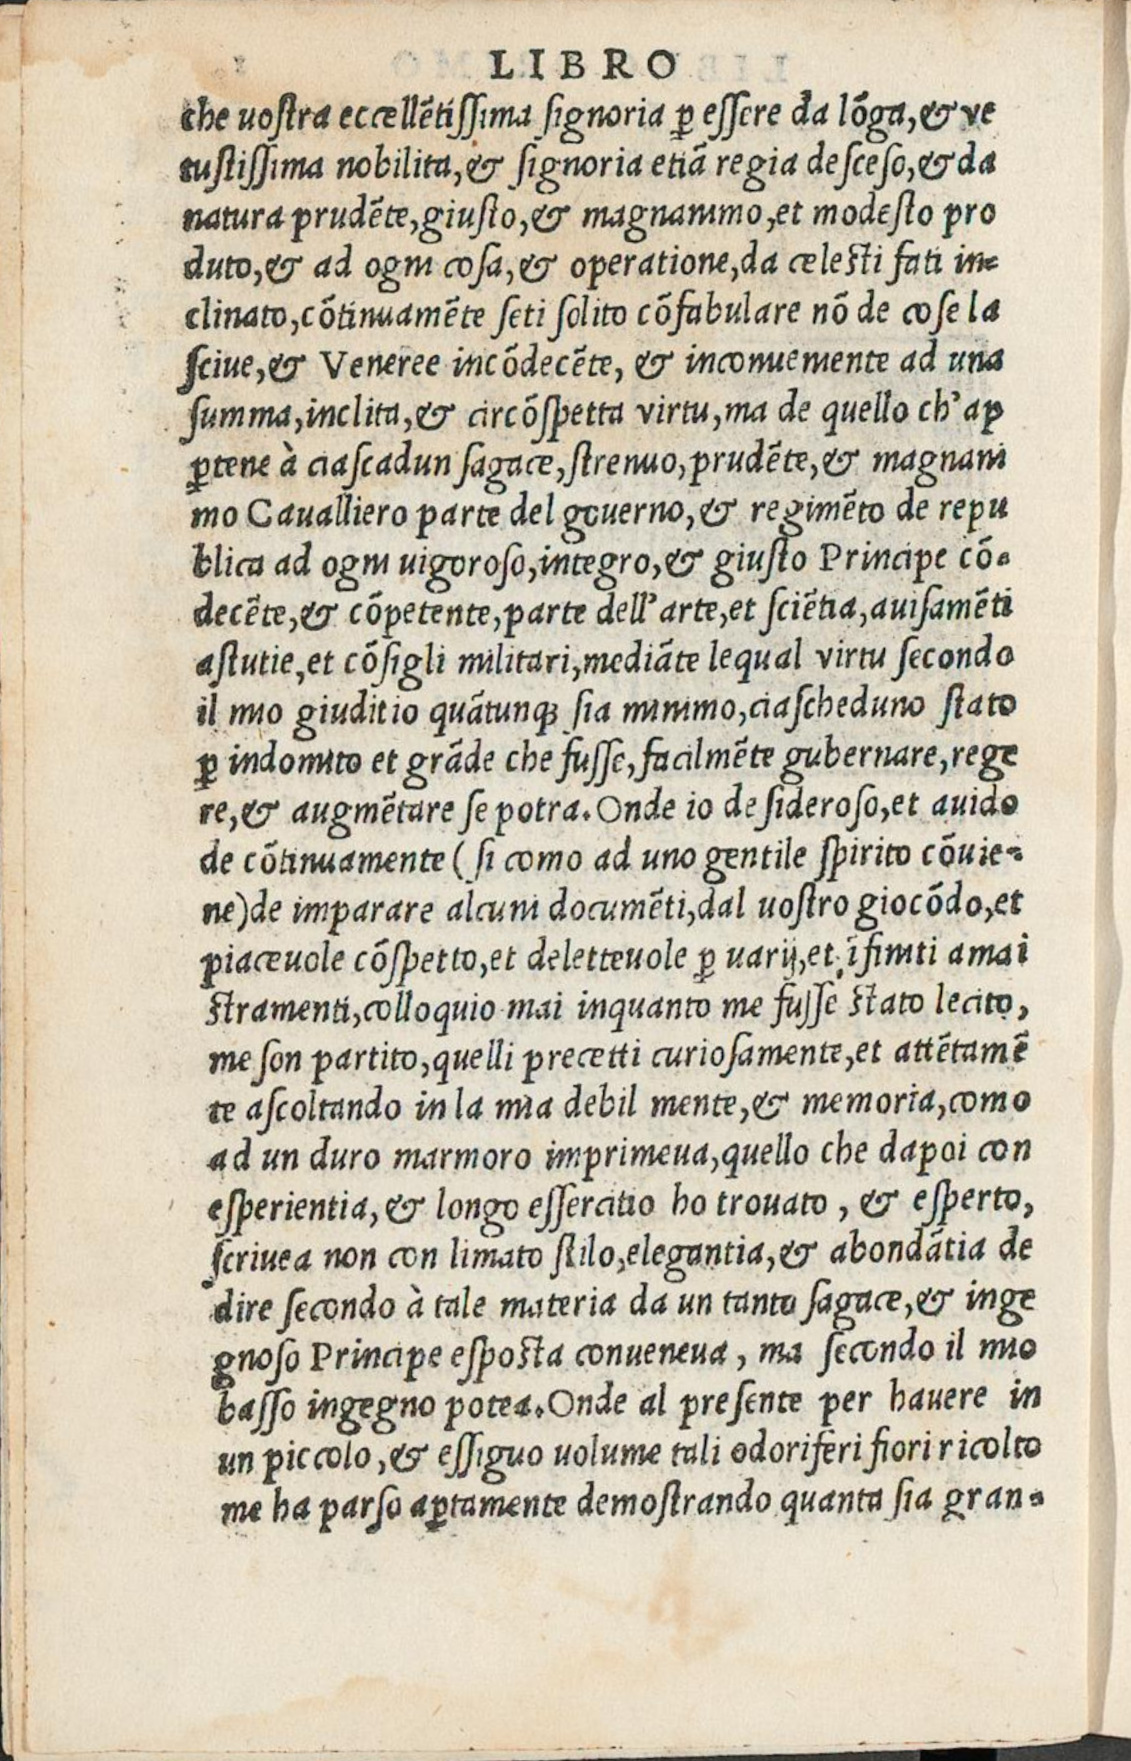 LIBRO
che uoſtra eccellẽtiſſima ſignoria ꝑ eſſere da lõga, & ve
tuſtiſſima nobilita, & ſignoria etiã regia deſceſo, & da
natura prudẽte, giuſto, & magnanimo, et modeſto pro
duto, & ad ogni coſa, & operatione, da celeſti fati in-
clinato, cõtinuamẽte ſeti ſolito cõfabulare nõ de coſe la
ſciue, & Veneree incõdecẽte, & inconueniente ad una
ſumma, inclita, & circõſpetta virtu, ma de quello ch'ap
ꝑtene à ciaſcadun ſagace, ſtrenuo, prudẽte, & magnani
mo Cavalliero parte del gouerno, & regimẽto de repu
blica ad ogni uigoroſo, integro, & giuſto Principe cõ-
decẽte, & cõpetente, parte dell'arte, et ſciẽtia, auiſamẽti
aſtutie, et cõſigli militari, mediãte lequal virtu ſecondo
il mio giuditio quãtunqꝫ ſia minimo, ciaſcheduno ſtato
ꝑ indomito et grãde che fuſſe, facilmẽte gubernare, rege
re, & augmẽtare ſe potra. Onde io deſideroſo, et auido
de cõtinuamente (ſi como ad uno gentile ſpirito cõuie-
ne) de imparare alcuni documẽti, dal uoſtro giocõdo, et
piaceuole cõſpetto, et deletteuole ꝑ uarij, et ĩfiniti amai
ſtramenti, colloquio mai inquanto me fuſſe ſtato lecito,
me ſon partito, quelli precetti curioſamente, et attẽtamẽ
te aſcoltando in la mia debil mente, & memoria, como
ad un duro marmoro imprimeua, quello che dapoi con
eſperientia, & longo eſſercitio ho trouato, & eſperto,
ſcriuea non con limato ſtilo, elegantia, & abondãtia de
dire ſecondo à tale materia da un tanto ſagace, & inge
gnoſo Principe eſpoſta conueneua, ma ſecondo il mio
baſſo ingegno potea. Onde al preſente per hauere in
un piccolo, & eſſiguo uolume tali odoriferi fiori ricolto
me ha parſo aꝑtamente demoſtrando quanta ſia gran-